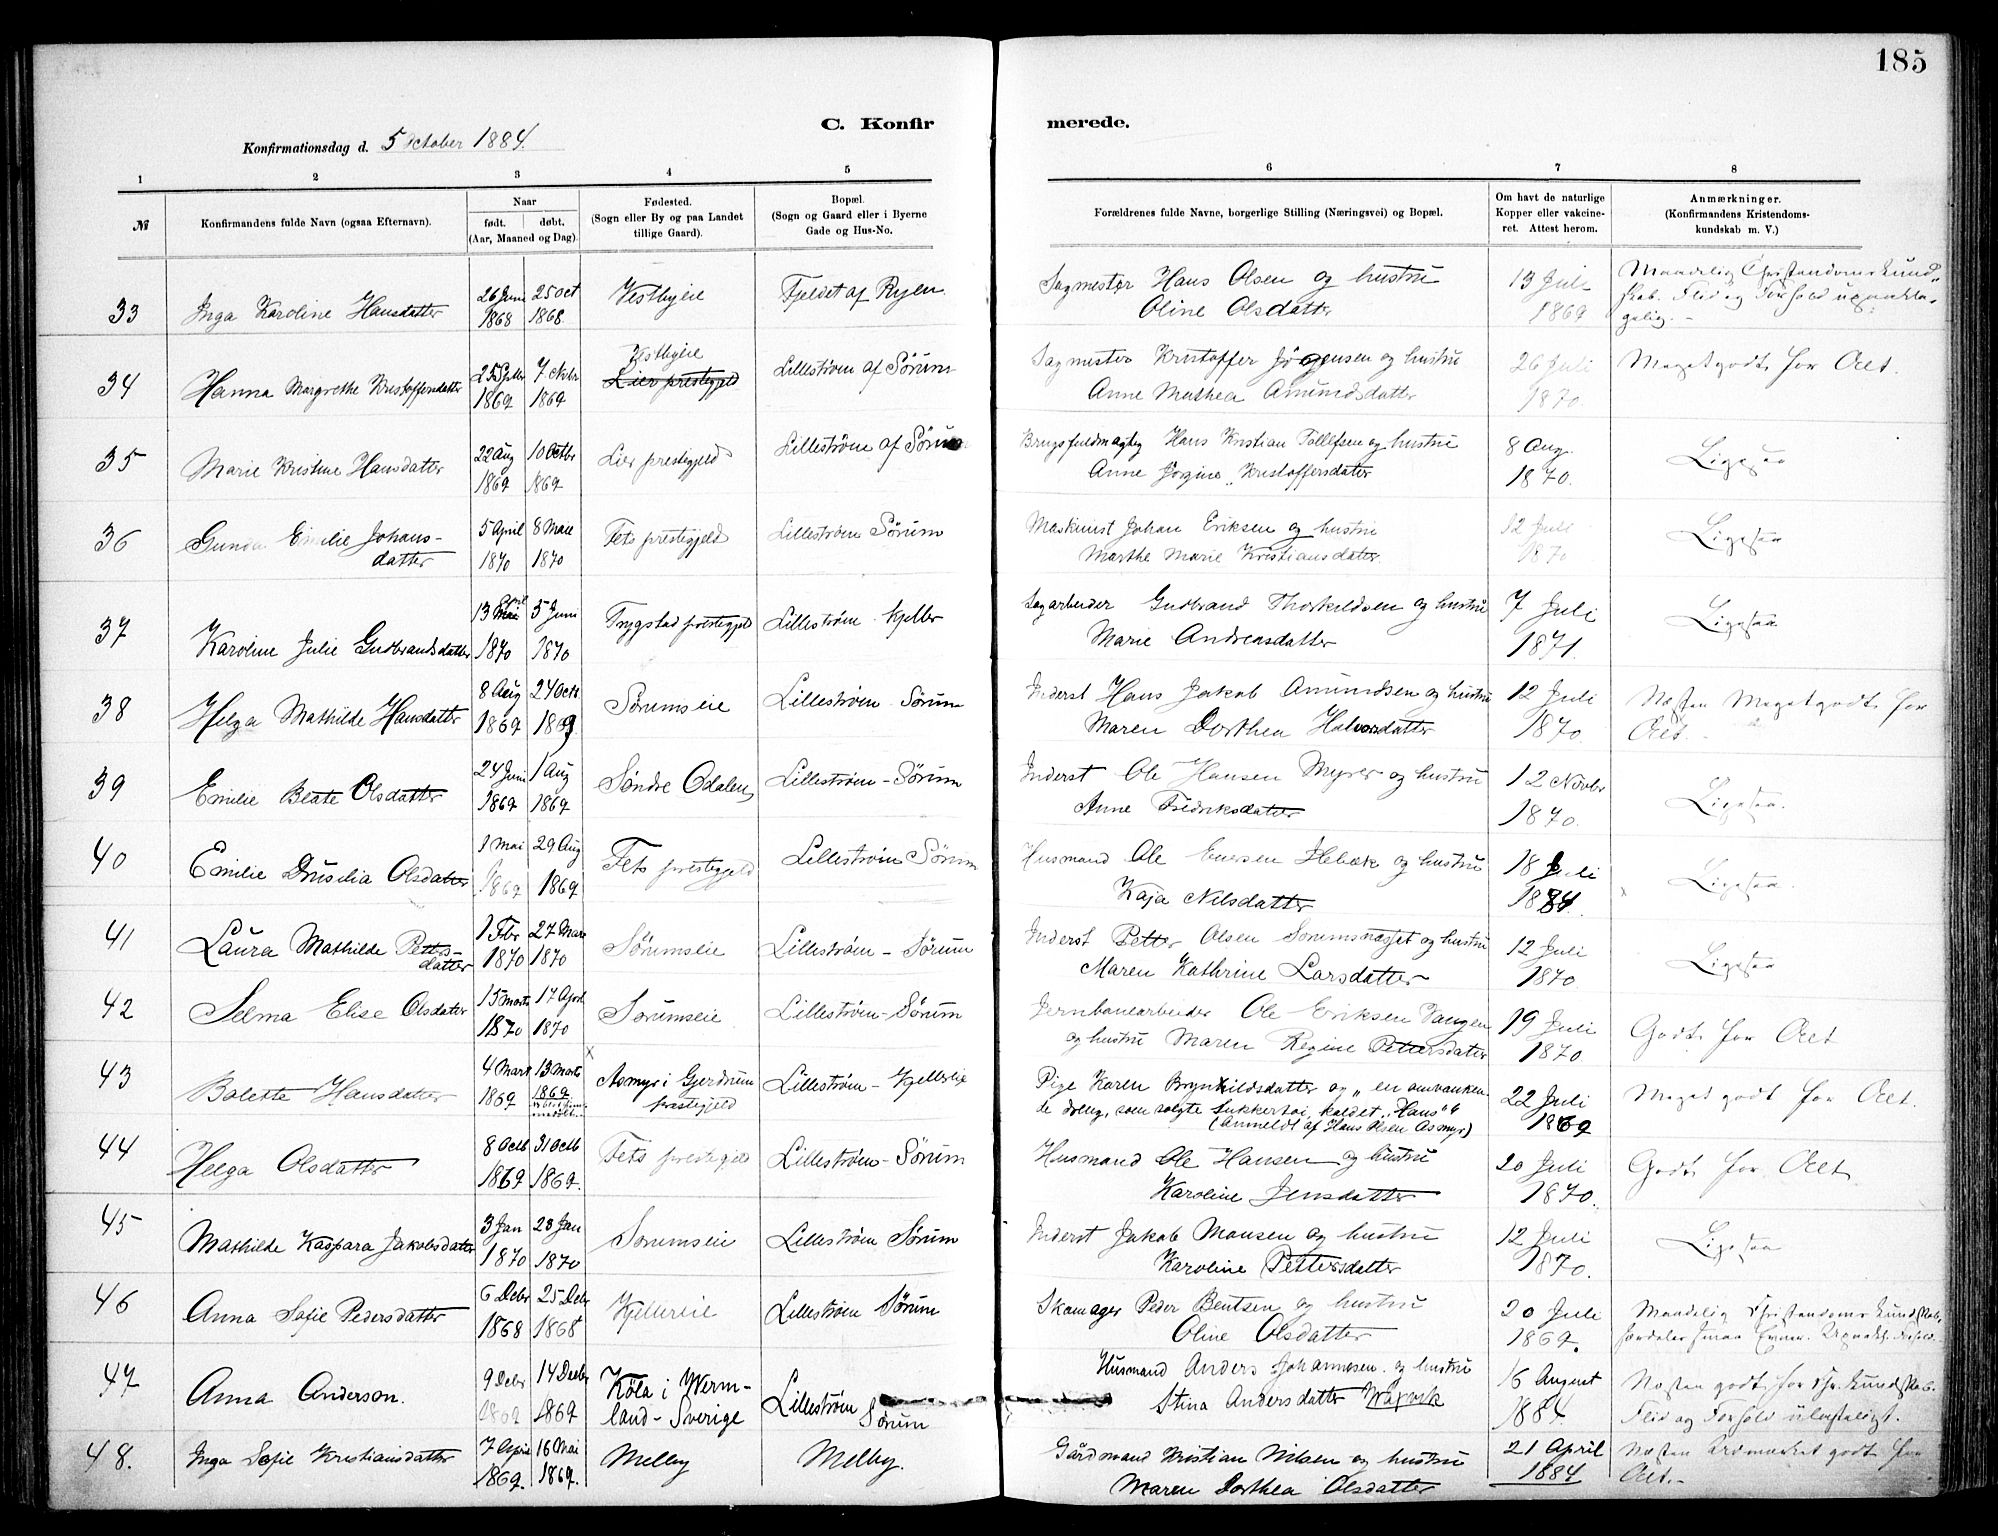 185
C. Konfir merede.
Konfirmationsdag d. 5 October 1884.
1 2 3 4 5 6 7 8
№
Konfirmandens fulde Navn (ogsaa Efternavn).
Naar
født. døbt.
(Aar, Maaned og Dag).
Fødested.
(Sogn eller By og paa Landet
tillige Gaard).
Bopæl.
(Sogn og Gaard eller i Byerne
Gade og Hus-No.
Forældrenes fulde Navne, borgerlige Stilling (Næringsvei) og Bopæl.
Om havt de naturlige
Kopper eller vakcine-
ret. Attest herom.
Anmærkninger.
(Konfirmandens Kristendoms-
kundskab m. V.)
33
Inga Karoline Hansdatter
26 Juni
1868
25 Oct
1868.
Vestbyeie
Fjeldet af Ryen.
Sagmester Hans Olsen og hustru
Oline Olsdatter
13 Jul
1869
Maadelig Christendomskund-
skab. Flid og Forhold upaakla-
gelig.
34
Hanna Margrethe Kristoffersdatter
1869
7 Oktbr
1869
Vestbyeie
Lier prestegjeld
Lillestrøm af Sørum
Sagmester Kristoffer Jørgensen og hustru
Anne Mathea Amundsdatter
26 Juli
1870.
Meget godt for Aet.
35
Marie Kristine Hansdatter
22 Aug
1869
10 Octbr
1869
Lier prestegjeld
Lillestrøm af Sørum
Brugsfuldmægtig Hans Kristian Tollefsen og hustru
Anne Jørgine Kristoffersdatter
8 Aug.
1870.
Ligesaa
36
Gunda Emilie Johans-
datter
5 April
1870
8 Mai
1870
Fets prestegjeld
Lillestrøm Sørum
Maskinist Johan Eriksen og hustru
Marthe Marie Kristiansdatter.
12 Juli
1870
Ligesaa
37
Karoline Julie Gudbrandsdatter
13 Mai
1870
5 Juni
1870
Trygstad prestegjeld
Lillestrøm Kjeller
Sagarbeider Gudbrand Thorkildsen og hustru
Marie Andreasdatter
7 Juli
1871.
Ligesaa
38
Helga Mathilde Hansdatter
8 Aug
1869
24 Octb
1869
Sørumseie
Lillestrøm Sørum
Inderst Hans Jakob Amundsen og hustru
Maren Dorthea Halvorsdatter
12 Juli
1870.
Næsten Meget godt for
Aet.
39
Emilie Beate Olsdatter
24 Juni
1869
1 Aug
1869
Søndre Odalen
Lillestrøm - Sørum
Inderst Ole Hansen Myrer og hustru
Anne Fredriksdatter
12 Novbr
1870.
Ligesaa.
40
Emilie Drusilia Olsdatter
1 Mai
1869
29 Aug
1869
Fets prestegjeld
Lillestrøm Sørum
Husmand Ole Enersen Hebæk og hustru
Kaja Nilsdatter
18 Juli
1884.
Ligesaa.
41
Laura Mathilde Petters-
datter
1 Febr
1870
27 Mars
1870
Sørumseie
Lillestrøm - Sørum
Inderst Petter Olsen Sørumsnæsset og hustru
Maren Kathrine Larsdatter
12 Juli
1870.
Ligesaa
42
Selma Elise Olsdatter
15 Marts
1870
17 April
1870
Sørumseie
Lillestrøm - Sørum
Jernbanearbeider Ole Eriksen Vangen
og hustru Maren Regine Pettersdatter
19 Juli
1870
Godt for Aet
43
Bolette Hansdatter
4 Mars
1869
13 Marts
1869
x
Asmyr i Gjerdrum
prestegjeld
Lillestrøm - Kjellerseie
Pige Karen Brynhildsdatter og „en omvanken-
de dreng, som solgte sukkertøi, kaldet „Hans"
(Anmeldt af Hans Olsen Asmyr)
22 Juli
1869
Meget godt for Aet.
44
Helga Olsdatter
8 Octb
1869
31 Octb
1869.
Fets prestegjeld
Lillestrøm - Sørum
Husmand Ole Hansen og hustru
Karoline Jensdatter
20 Juli
1870.
Godt for Aet
45
Mathilde Kaspara Jakobsdatter
3 Jan
1870
23 Jan
1870
Sørumseie
Lillestrøm Sørum
Inderst Jakob Monsen og hustru
Karoline Pettersdatter
12 Juli
1870.
Ligesaa
46
Anna Sofie Pedersdatter
6 Debr
1868
25 Debr
1868
Kjellereie
Lillestrøm Sørum
Skomager Peder Bentsen og hustru
Oline Olsdatter
20 Juli
1869.
Maadelig Christendomskundskab.
Særdeles smaa Evner. Upaakl. Forhold.
47
Anna Anderson.
9 Debr
1869
14 Decbr
1869
Köla i Werm-
land - Sverige
Lillestrøm
Sørum
Husmand Anders Johannesen og hustru
Stina Andersdatter
16 August
1884
Næsten godt for Chr. kundskab.
Flid og Forhold ulasteligt.
48.
Inga Sofie Kristiansdatter
7 April
1869.
16 Mai
1869.
Melby
Melby.
Gårdmand Kristian Nilsen og hustru
Maren Dorthea Olsdatter
21 April
1884
Næsten Udmærket godt for
Aet.